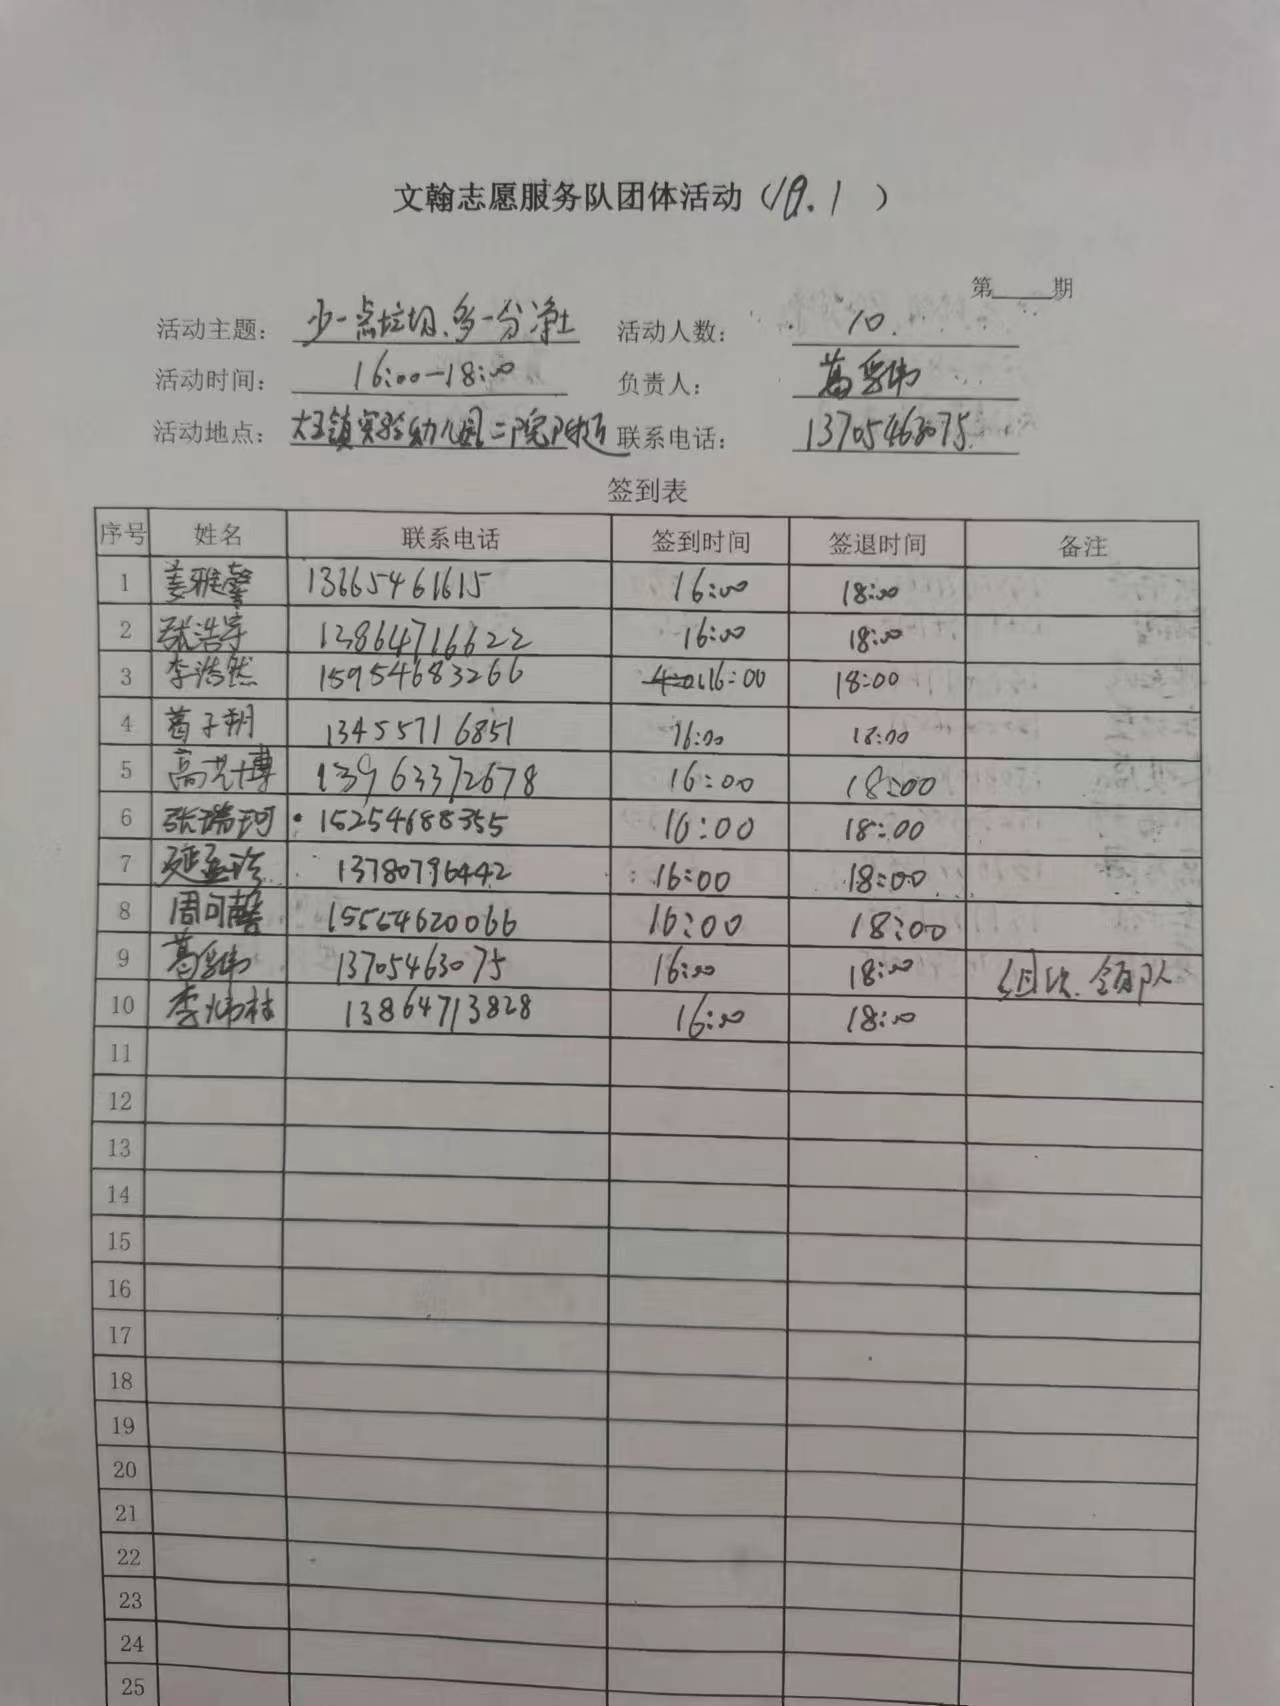 文翰志愿服务队团体活动（10.1）
第____期
活动主题： 少一点垃圾、多一分净土 活动人数： 10
活动时间： 16:00-18:00 负责人： 葛
活动地点： 大王镇实验幼儿园二院附近 联系电话： 13705463075
签到表
序号 姓名 联系电话 签到时间 签退时间 备注
1 姜雅馨 13665461615 16:00 18:00
2 张浩宇 13864716622 16:00 18:00
3 李浩然 15954683266 16:00 18:00
4 葛子朔 13455716851 16:00 18:00
5 高艺博 13963372678 16:00 18:00
6 张瑞珂 15254688355 16:00 18:00
7 延孟 13780796442 16:00 18:00
8 周问馨 15554620066 16:00 18:00
9 葛 13705463075 16:00 18:00 组织、领队
10 李炜林 13864713828 16:00 18:00
11
12
13
14
15
16
17
18
19
20
21
22
23
24
25